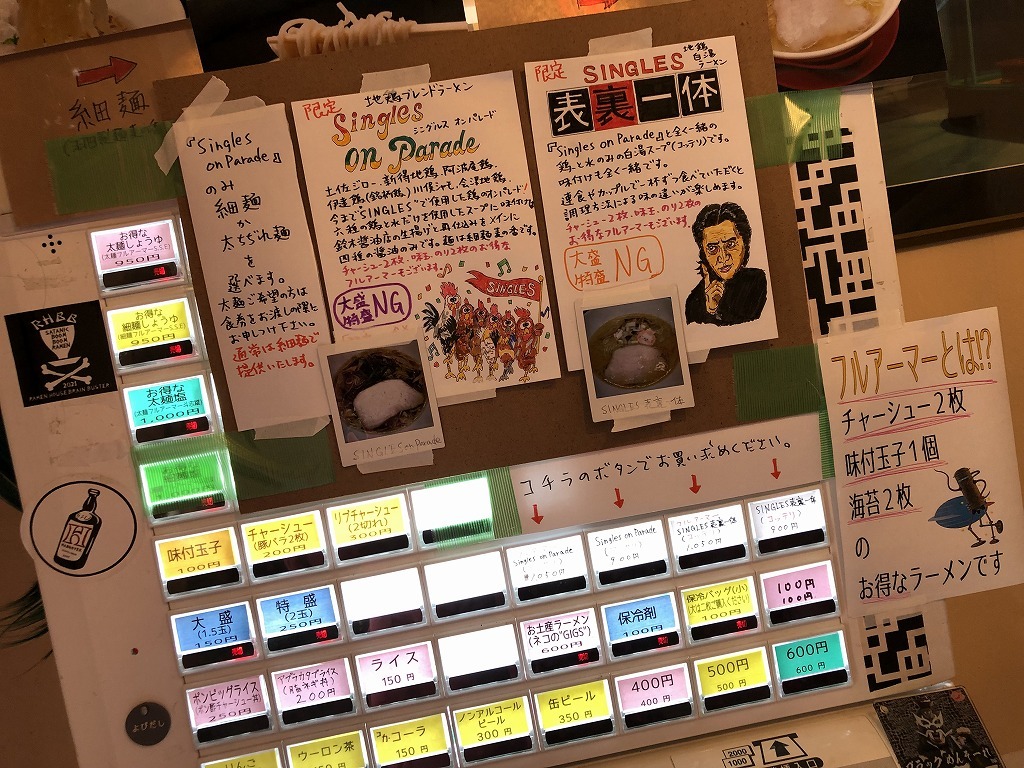 細麺
『Singles
on Parade』
のみ
細麺
か
太ちぢれ麺
を
選べます。
太麺ご希望の方は
食券をお渡しの際と
お申しつけ下さい。
通常は細麺で
提供いたします。
限定 地鶏ブレンドラーメン
Singles
シングルス オン パレード
on Parade
土佐ジロー、新得地鶏、阿波尾鶏、
伊達鶏(銘柄鶏)川俣シャモ、会津地鶏、
今まで"SINGLES"で使用した鶏のオンパレード!
六種の鶏と水だけを使用したスープに味付けは
鈴木醤油店の生揚げと再仕込みをメインに
四種の醤油のみです。麺は細麺or麦の香です。
チャーシュー2枚、味玉、のり2枚のお得な
フルアーマーもございます。
大盛
特盛 NG
SINGLES
SINGLES on Parade
限定 SINGLES 地鶏
白湯
ラーメン
表裏一体
『Singles on Parade』と全く一緒の
鶏と水のみの白湯スープ(コッテリ)です。
味付けも全く一緒です。
連食やカップルで一杯ずつ食べていただくと
調理方法による味の違いが楽しめます。
チャーシュー2枚、味玉、のり2枚の
お得なフルアーマーもございます。
大盛
特盛 NG
SINGLES 表裏一体
フルアーマーとは!?
チャーシュー2枚
味付玉子1個
海苔2枚
の
お得なラーメンです
コチラのボタンでお買い求めください。
お得な
太麺しょうゆ
950円
お得な
細麺しょうゆ
950円
お得な
太麺塩
1,000円
RHBB
SATANIC
BOOM BOOM
RAMEN
2021
RAMEN HOUSE BRAIN BUSTER
味付玉子
100円
チャーシュー
(豚バラ2枚)
200円
リブチャーシュー
(2切れ)
300円
Singles on Parade
¥1050円
Singles on Parade
900円
フルアーマー
SINGLES表裏一体
(コッテリ)
1050円
SINGLES表裏一体
(コッテリ)
900円
大盛
(1.5玉)
150円
特盛
(2玉)
250円
お土産ラーメン
(ネコの"GIGS")
600円
保冷剤
100円
保冷バッグ(小)
100円
100円
100円
ボンビッグライス
250円
アブラカタブライス
200円
ライス
150円
コーラ
150円
ノンアルコール
ビール
300円
缶ビール
350円
400円
400円
500円
500円
600円
600円
りんご
ウーロン茶
よびだし
2000
1000